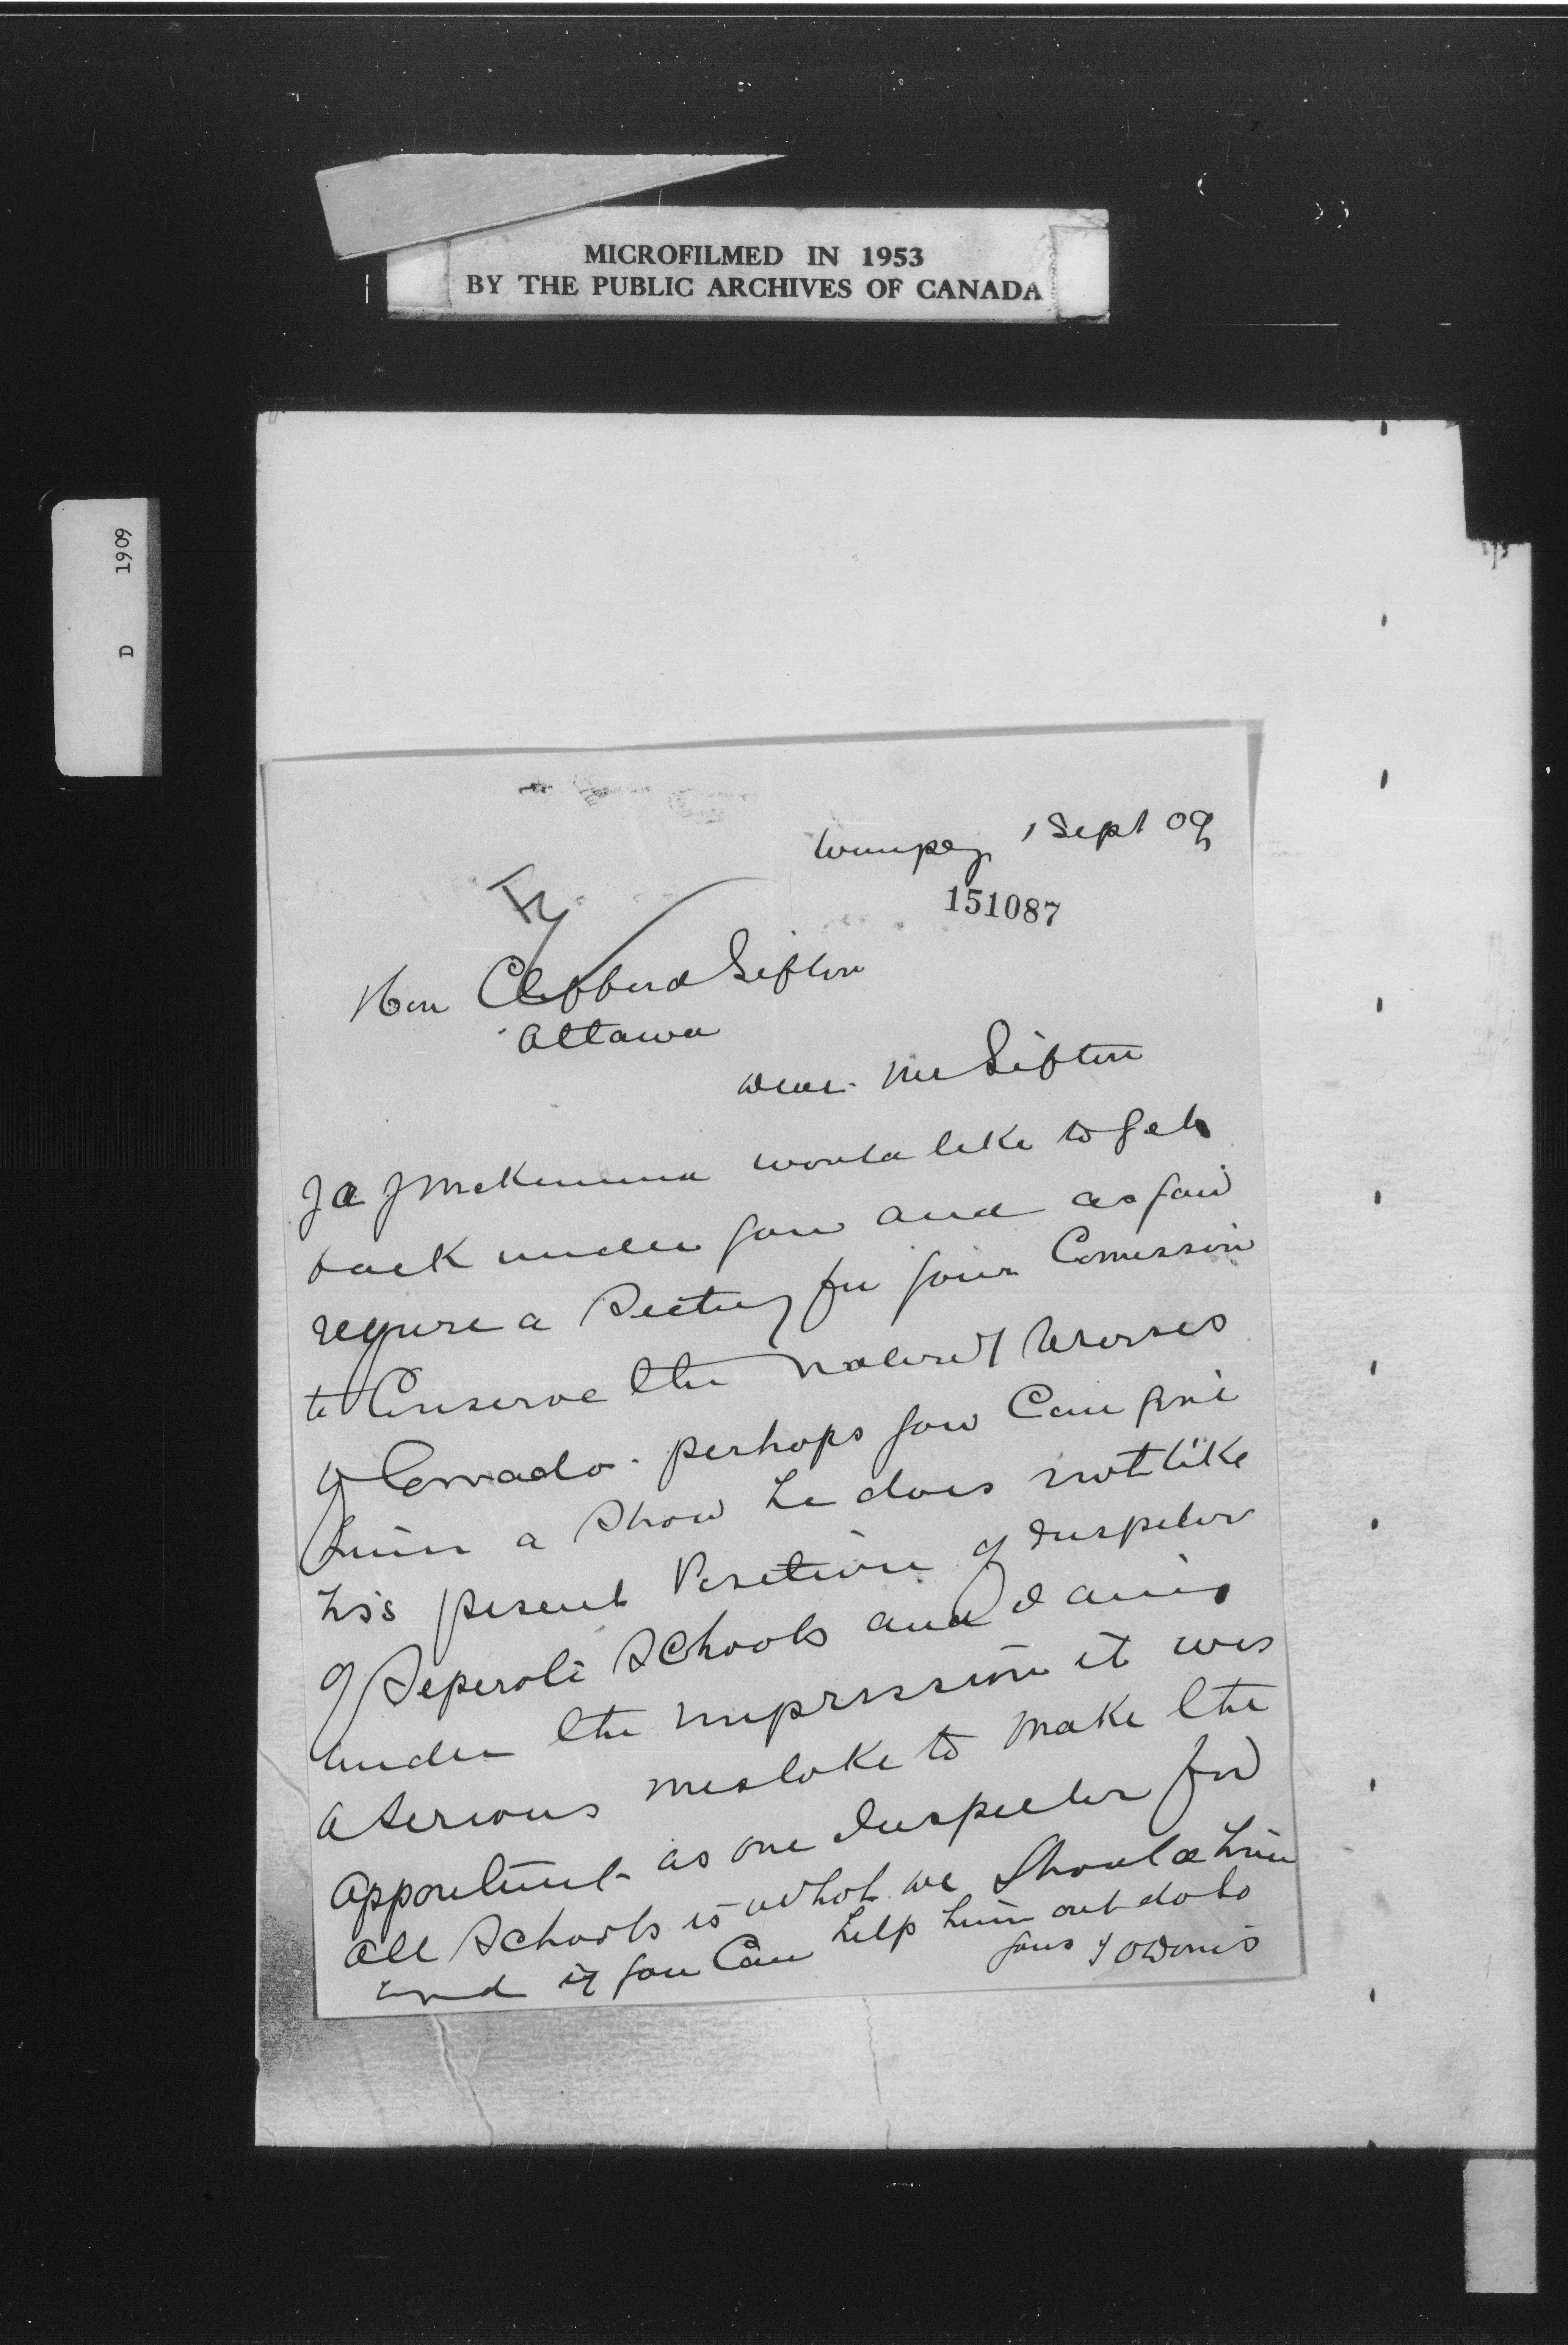 MICROFILMED IN 1953
BY THE PUBLIC ARCHIVES OF CANADA
D 1909
Winnipeg 1 Sept 09
151087
Hon Clifford Sifton
Ottawa
Dear Mr Sifton
J A J McKenna would like to get
back under you and as you
require a Secty for your Comission
to Conserve the natural
of Canada. perhaps you Can give
him a Show he does not like
his present Position of Inspector
of Seperate Schools and I am
under the impression it was
a serious mistake to make the
appointment as one Inspector for
all Schools is what we Should
and if you Can help him out do so
yours T O Davis